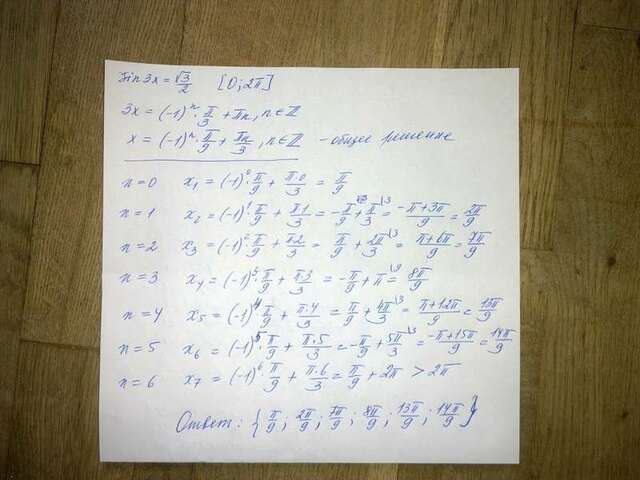 sin 3x = √3/2 [0; 2π]
3x = (-1)ⁿ · π/3 + πn, n ∈ ℤ
x = (-1)ⁿ · π/9 + πn/3, n ∈ ℤ - общее решение
n = 0 x₁ = (-1)⁰ · π/9 + π·0/3 = π/9
n = 1 x₂ = (-1)¹ · π/9 + π·1/3 = -π/9 + π/3 \3 = -π+3π/9 = 2π/9
n = 2 x₃ = (-1)² · π/9 + π·2/3 = π/9 + 2π/3 \3 = π+6π/9 = 7π/9
n = 3 x₄ = (-1)³ · π/9 + π·3/3 = -π/9 + π \9 = 8π/9
n = 4 x₅ = (-1)⁴ · π/9 + π·4/3 = π/9 + 4π/3 \3 = π+12π/9 = 13π/9
n = 5 x₆ = (-1)⁵ · π/9 + π·5/3 = -π/9 + 5π/3 \3 = -π+15π/9 = 14π/9
n = 6 x₇ = (-1)⁶ · π/9 + π·6/3 = π/9 + 2π > 2π
Ответ: {π/9; 2π/9; 7π/9; 8π/9; 13π/9; 14π/9}